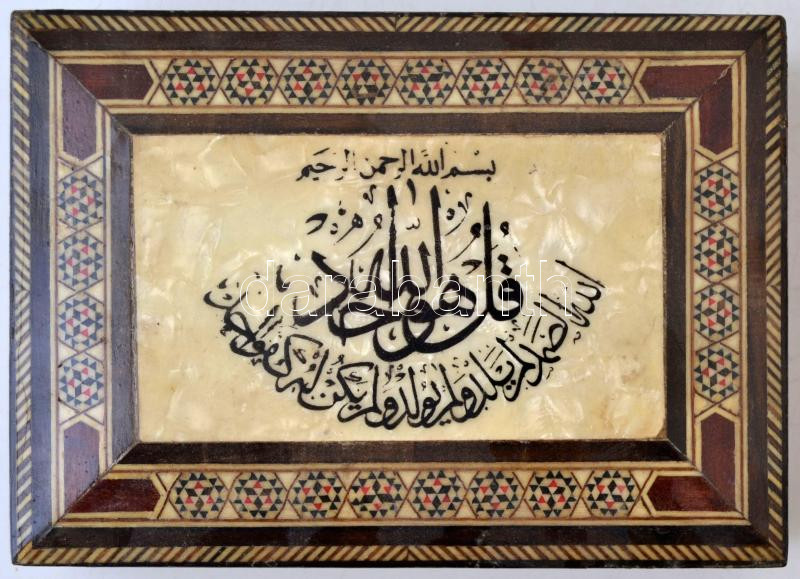 بسم الله الرحمن الرحيم
قل هو الله احد
الله الصمد لم يلد ولم يولد ولم يكن له كفوا احد
darabanth